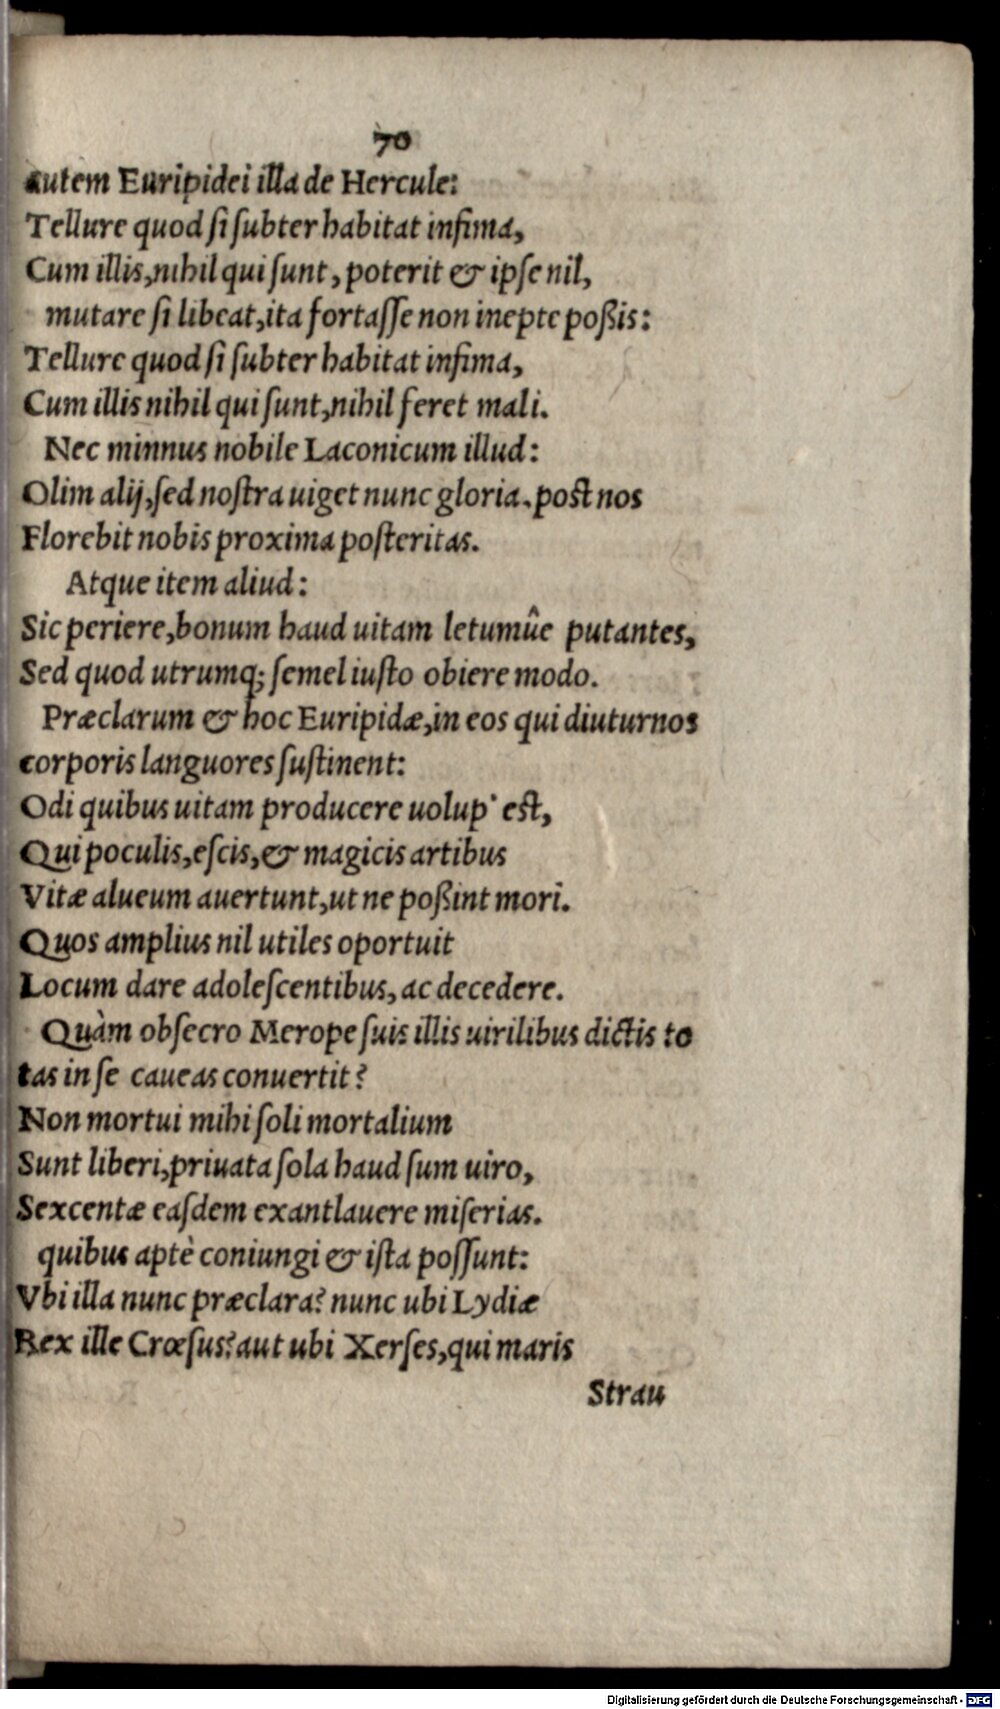 70
autem Euripidei illa de Hercule:
Tellure quod ſi ſubter habitat infima,
Cum illis, nihil qui ſunt, poterit & ipſe nil,
mutare ſi libeat, ita fortaſſe non inepte poßis:
Tellure quod ſi ſubter habitat infima,
Cum illis nihil qui ſunt, nihil feret mali.
Nec minnus nobile Laconicum illud:
Olim alij, ſed noſtra uiget nunc gloria. poſt nos
Florebit nobis proxima poſteritas.
Atque item aliud:
Sic periere, bonum haud uitam letumûe putantes,
Sed quod utrumq; ſemel iuſto obiere modo.
Præclarum & hoc Euripidæ, in eos qui diuturnos
corporis languores ſuſtinent:
Odi quibus uitam producere uolup' eſt,
Qui poculis, eſcis, & magicis artibus
Vitæ alueum auertunt, ut ne poßint mori.
Quos amplius nil utiles oportuit
Locum dare adoleſcentibus, ac decedere.
Quàm obſecro Merope ſuis illis uirilibus dictis to
tas in ſe caueas conuertit?
Non mortui mihi ſoli mortalium
Sunt liberi, priuata ſola haud ſum uiro,
Sexcentæ eaſdem exantlauere miſerias.
quibus aptè coniungi & iſta poſſunt:
Vbi illa nunc præclara? nunc ubi Lydiæ
Rex ille Crœſus? aut ubi Xerſes, qui maris
Strau
Digitalisierung gefördert durch die Deutsche Forschungsgemeinschaft - DFG